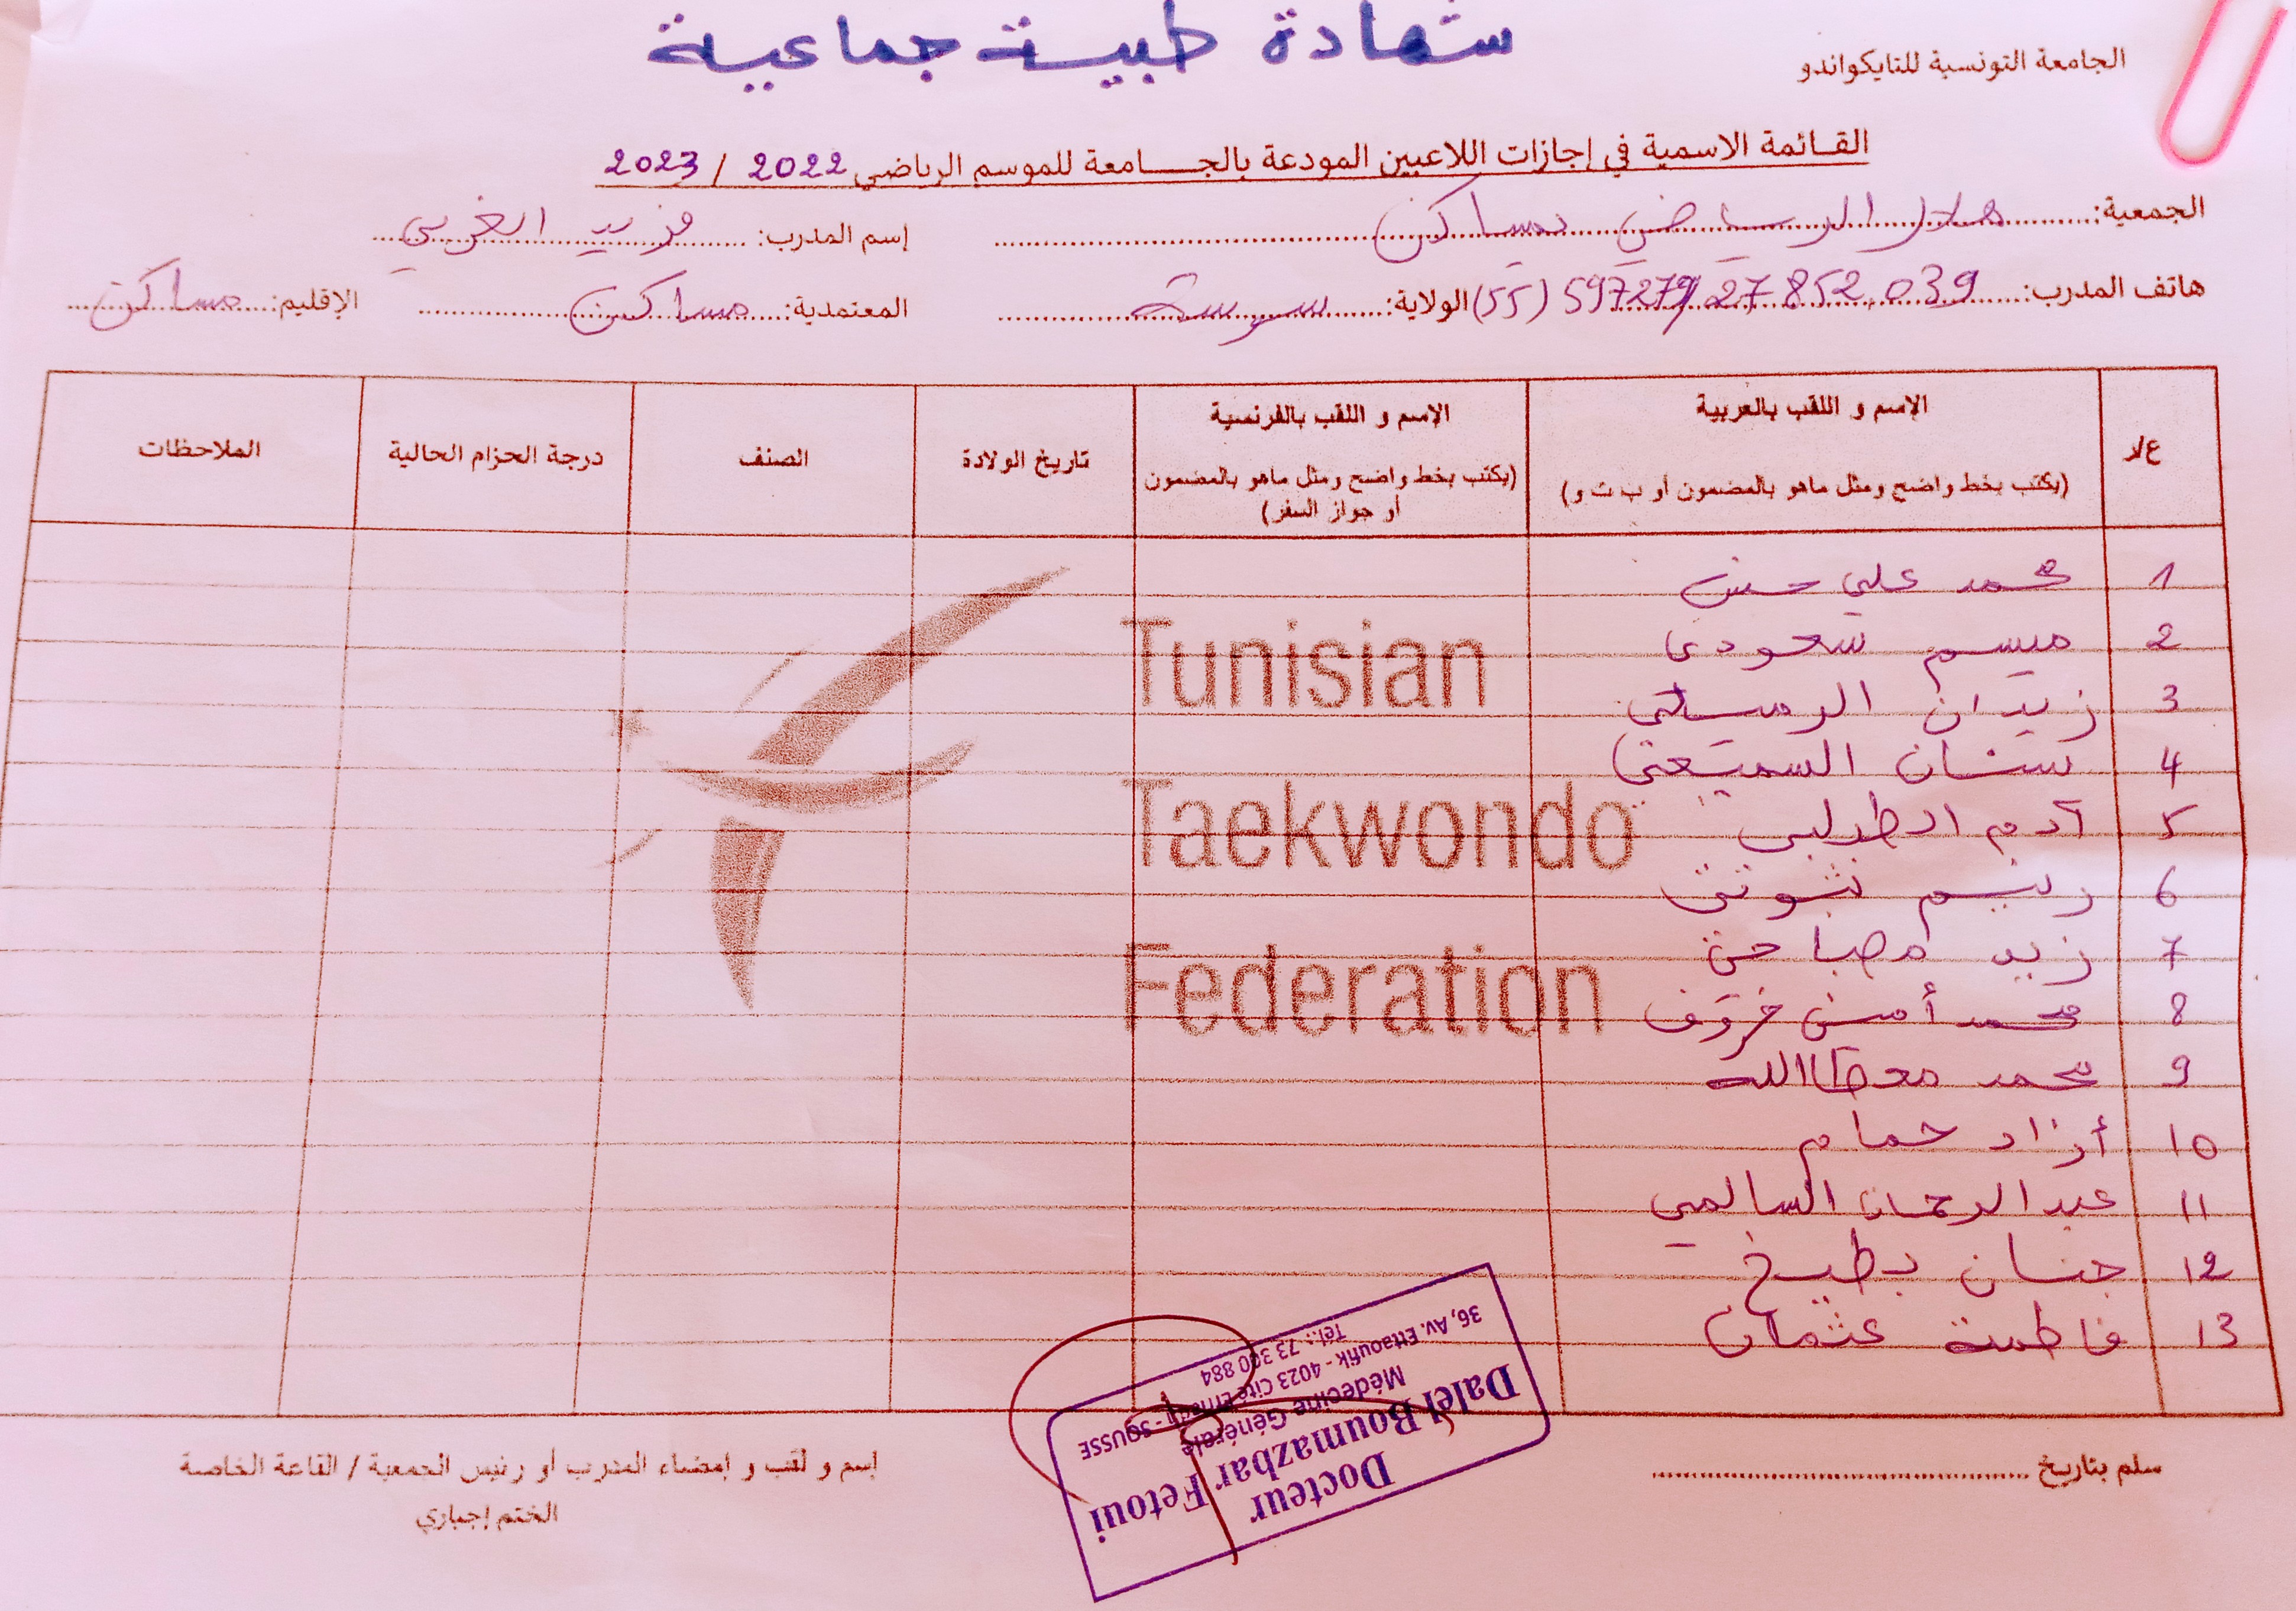 شهادة طبية جماعية
الجامعة التونسية للتايكواندو
القائمة الاسمية في إجازات اللاعبين المودعة بالجامعة للموسم الرياضي 2022 / 2023
الجمعية: هلال الرياضي بمساكن إسم المدرب:
هاتف المدرب: 27 852 039 / 597279 (55) الولاية: سوسة المعتمدية: مساكن الإقليم: مساكن
ع/د
الإسم و اللقب بالعربية
(يكتب بخط واضح ومثل ماهو بالمضمون أو ب ت و)
الإسم و اللقب بالفرنسية
(يكتب بخط واضح ومثل ماهو بالمضمون
أو جواز السفر)
تاريخ الولادة
الصنف
درجة الحزام الحالية
الملاحظات
1 محمد علي حسن
2 ميسم سعودي
3 زيدان
4 سنان
5 آدم
6
7 زيد
8 محمد أمين
9 محمد معطاالله
10 أزاد حمام
11 عبد الرحمان السالمي
12 جنان بطيخ
13 فاطمة عثمان
Tunisian
Taekwondo
Federation
سلم بتاريخ
إسم و لقب و إمضاء المدرب أو رئيس الجمعية / القاعة الخاصة
الختم إجباري
Docteur
Dalel Boumazbar Fetoui
Médecine Générale
36, Av. Ettaoufik - 4023 Cité - SOUSSE
Tél.: 73 300 884